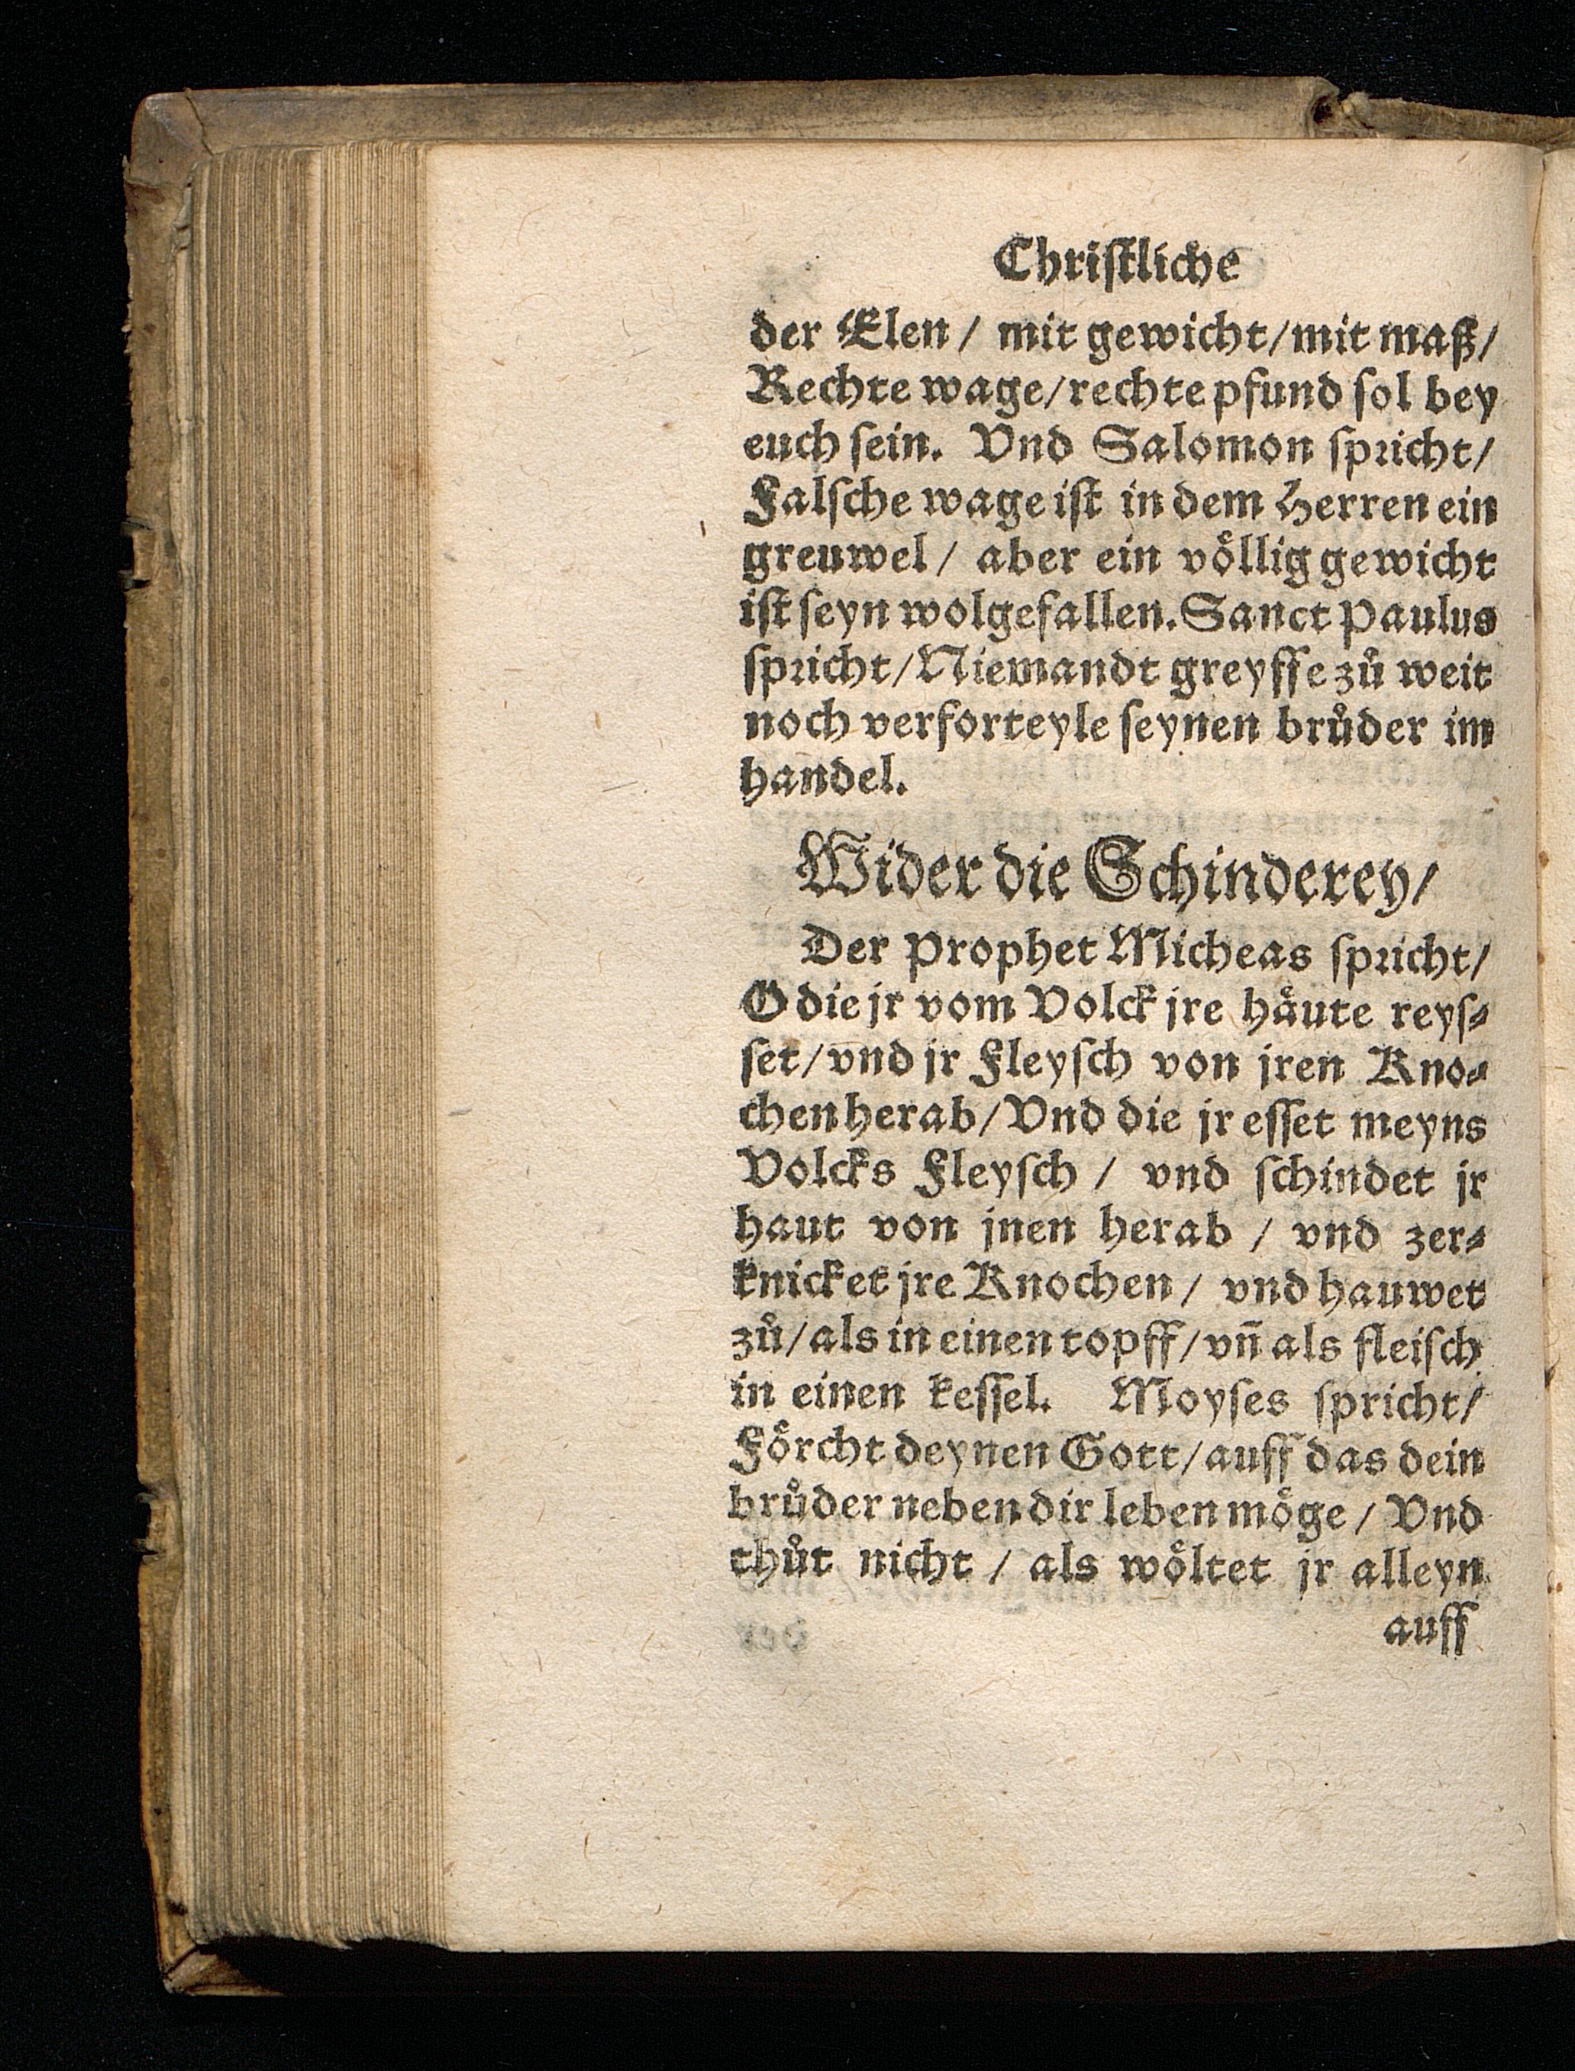 Chriſtliche
der Elen / mit gewicht / mit maß /
Rechte wage / rechte pfund ſol bey
euch ſein. Vnd Salomon ſpꝛicht /
Falſche wage iſt in dem Herren ein
greuwel / aber ein voͤllig gewicht
iſt ſeyn wolgefallen. Sanct Paulus
ſpꝛicht / Niemandt greyffe zuͦ weit
noch verforteyle ſeynen bruͦder im
handel.
Wider die Schinderey /
Der Prophet Micheas ſpꝛicht /
O die jr vom Volck jre haͤute reyſ⸗
ſet / vnd jr Fleyſch von jren Kno⸗
chen herab / Vnd die jr eſſet meyns
Volcks Fleyſch / vnd ſchindet jr
haut von jnen herab / vnd zer⸗
knicket jre Knochen / vnd hauwet
zuͦ / als in einen topff / vñ als fleiſch
in einen keſſel. Moyſes ſpricht /
Foͤrcht deynen Gott / auff das dein
bruͦder neben dir leben moͤge / Vnd
thuͦt nicht / als woͤltet jr alleyn
auff